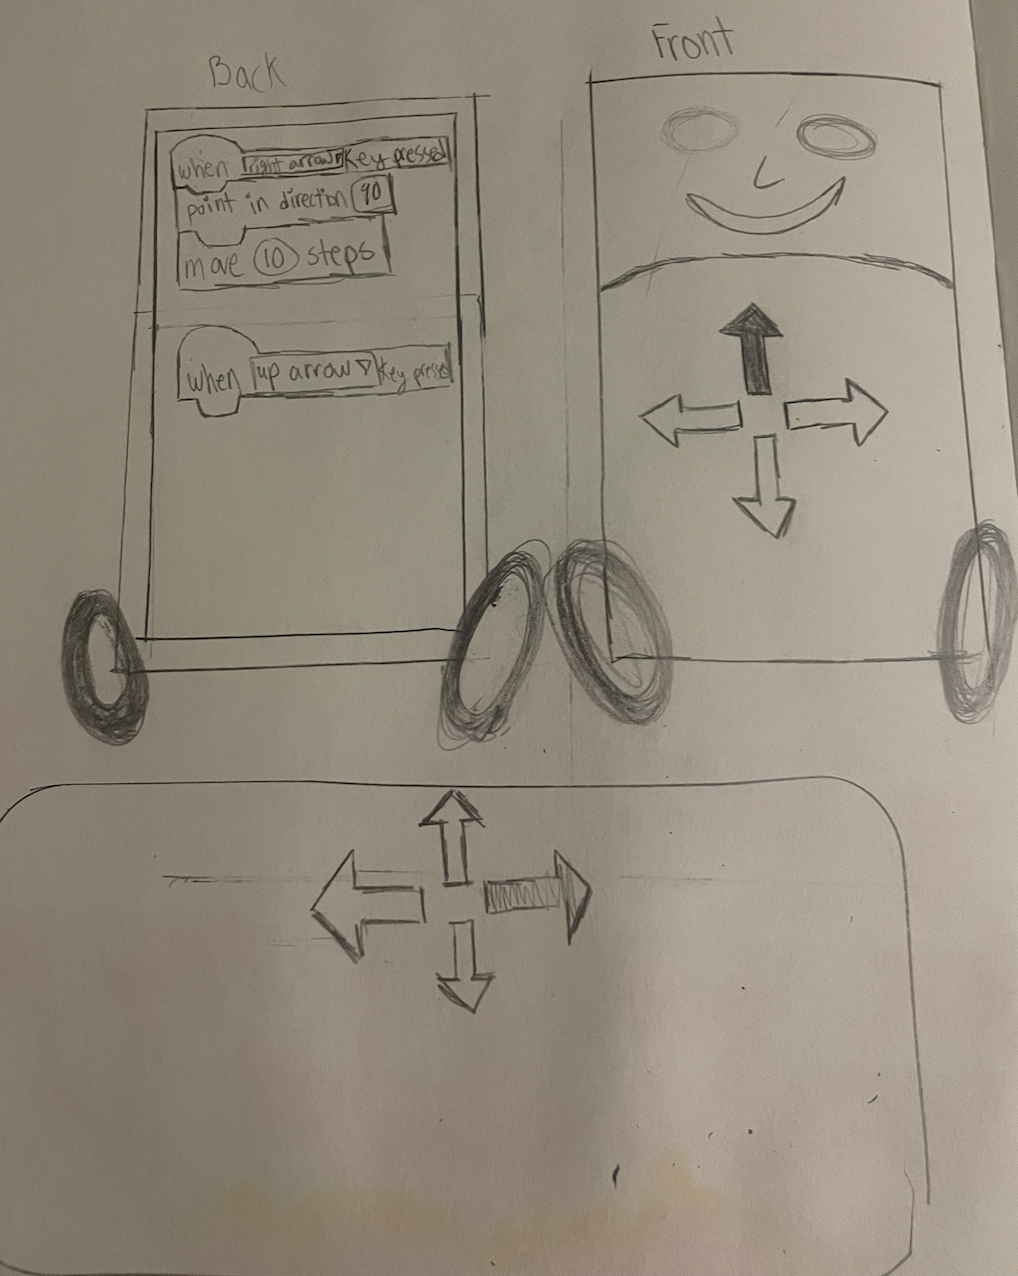 Back
Front
when right arrow key pressed
point in direction 90
move 10 steps
when up arrow key pressed